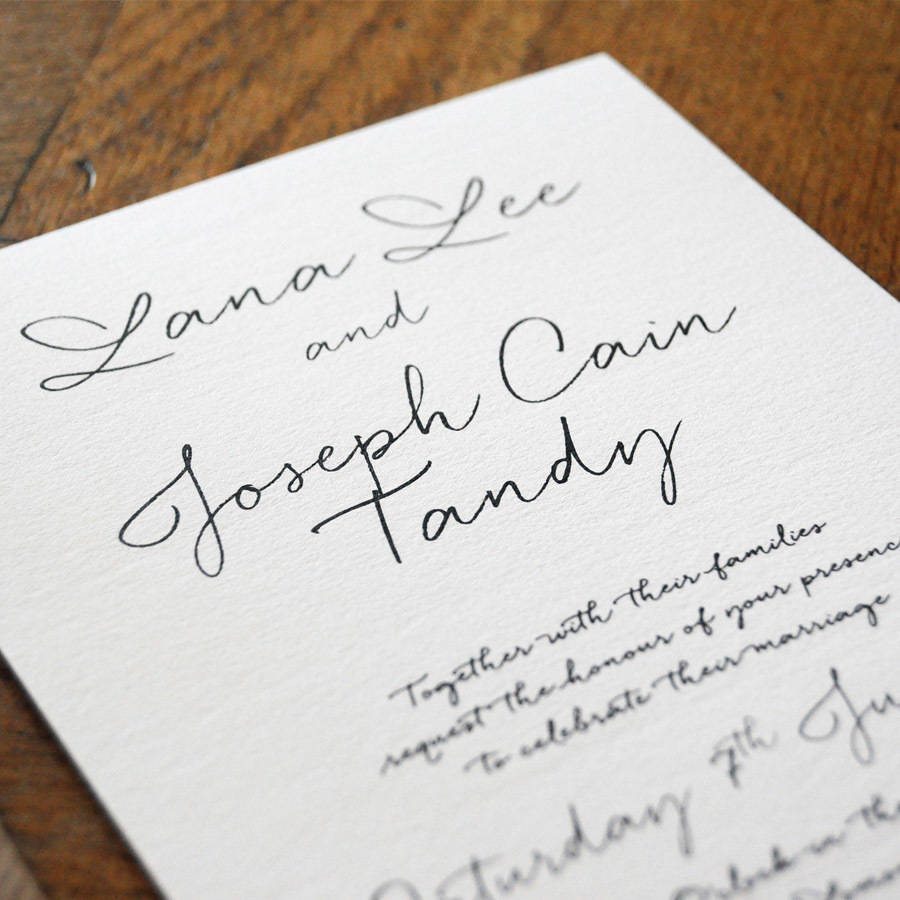 Lana Lee
and
Joseph Cain
Tandy
Together with their families
request the honour of your presenc
to celebrate their marriage
Saturday 7th Ju
O'clock in the